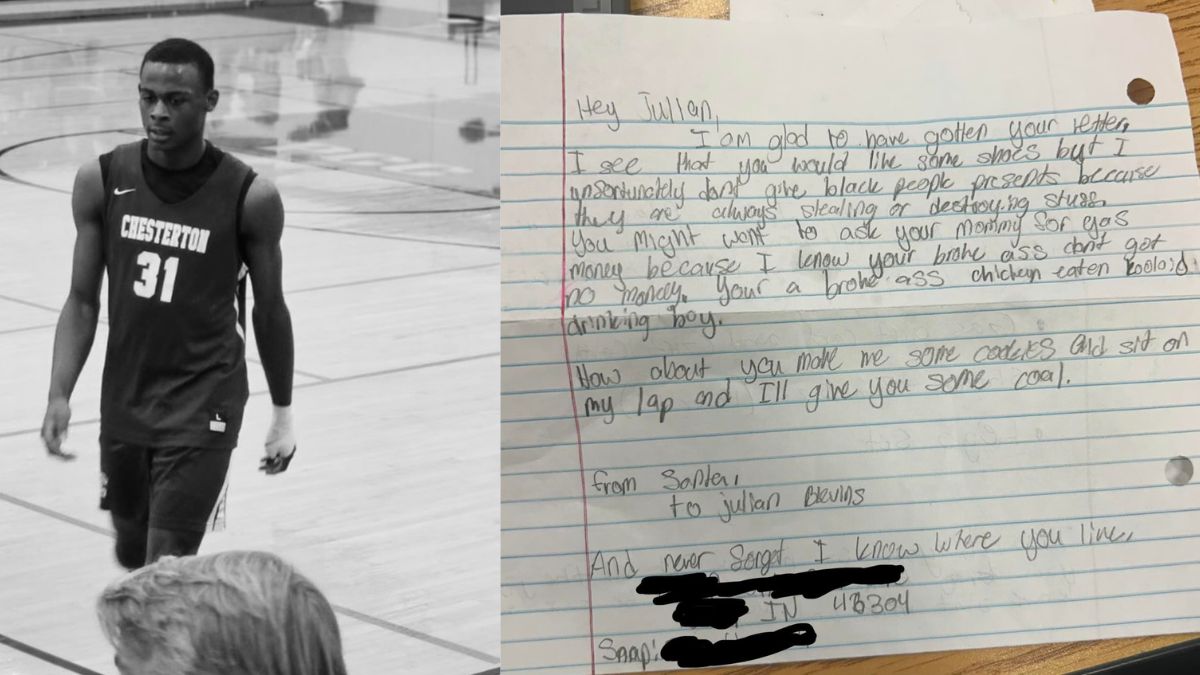 CHESTERTON
31
Hey Julian,
I am glad to have gotten your letter,
I see that you would like some shoes but I
unfortunately dont give black people presents because
they are always stealing or destroying stuff.
You might want to ask your mommy for gas
money because I know your broke ass dont got
no money. Your a broke ass chicken eaten koolaid
drinking boy.
How about you make me some cookies and sit on
my lap and I'll give you some coal.
from Santa,
to julian Blevins
And never forget I know where you live,
IN 46304
Snap: